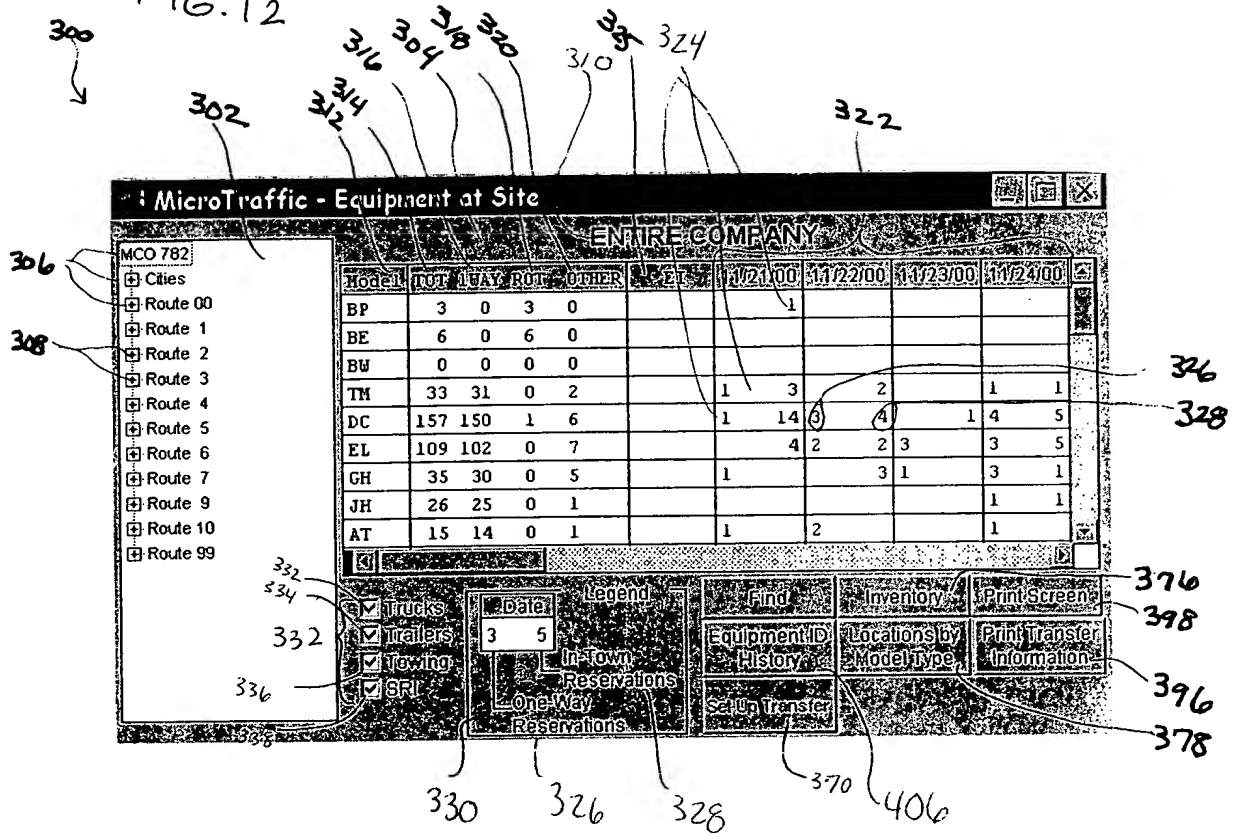 FIG. 12
300
302
312
314
316
304
318
320
310
325
324
322
MicroTraffic - Equipment at Site
ENTIRE COMPANY
306
308
MCO 782
Cities
Route 00
Route 1
Route 2
Route 3
Route 4
Route 5
Route 6
Route 7
Route 9
Route 10
Route 99
Model TOT 1WAY ROT OTHER ET 11/21/00 11/22/00 11/23/00 11/24/00
BP 3 0 3 0 1
BE 6 0 6 0
BW 0 0 0 0
TM 33 31 0 2 1 3 2 1 1
DC 157 150 1 6 1 14 3 4 1 4 5
EL 109 102 0 7 4 2 2 3 3 5
GH 35 30 0 5 1 3 1 3 1
JH 26 25 0 1 1 1
AT 15 14 0 1 1 2 1
326
328
332
334
332
336
338
Trucks
Trailers
Towing
SRI
Legend
Date
3 5
In-Town
Reservations
One-Way
Reservations
Find
Inventory
Print Screen
Equipment ID
History
Locations by
Model Type
Print Transfer
Information
Set Up Transfer
376
398
396
378
330
326
328
370
406